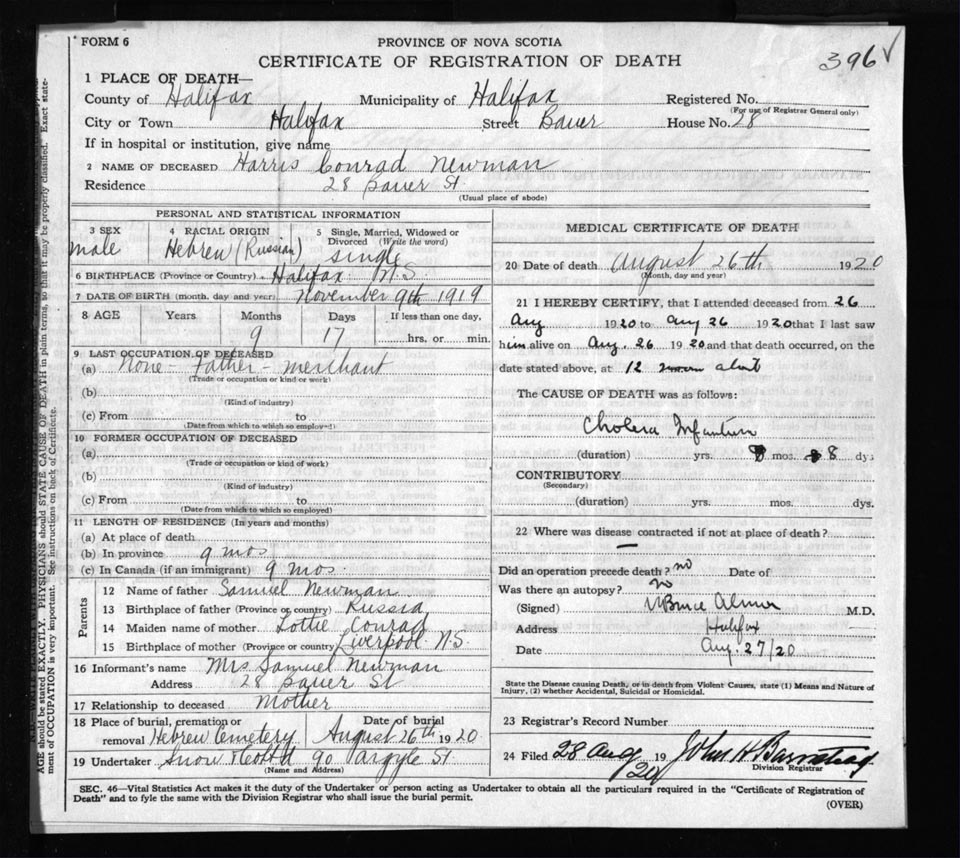 FORM 6
PROVINCE OF NOVA SCOTIA
396 √
CERTIFICATE OF REGISTRATION OF DEATH
1 PLACE OF DEATH—
County of Halifax Municipality of Halifax Registered No.
(For use of Registrar General only)
City or Town Halifax Street Bauer House No. 28
If in hospital or institution, give name
2 NAME OF DECEASED Harris Conrad Newman
Residence 28 Bauer St.
(Usual place of abode)
PERSONAL AND STATISTICAL INFORMATION
3 SEX 4 RACIAL ORIGIN 5 Single, Married, Widowed or Divorced (Write the word)
male Hebrew (Russian) single
6 BIRTHPLACE (Province or Country) Halifax N.S
7 DATE OF BIRTH (month, day and year) November 9th 1919
8 AGE Years Months Days If less than one day,
9 17 hrs. or min.
9 LAST OCCUPATION OF DECEASED
(a) None - Father - merchant
(Trade or occupation or kind or work)
(b)
(Kind of industry)
(c) From to
(Date from which to which so employed)
10 FORMER OCCUPATION OF DECEASED
(a)
(Trade or occupation or kind of work)
(b)
(Kind of industry)
(c) From to
(Date from which to which so employed)
11 LENGTH OF RESIDENCE (In years and months)
(a) At place of death
(b) In province 9 mos
(c) In Canada (if an immigrant) 9 mos.
Parents
12 Name of father Samuel Newman
13 Birthplace of father (Province or country) Russia
14 Maiden name of mother Lottie Conrad
15 Birthplace of mother (Province or country) Liverpool N.S.
16 Informant's name Mrs Samuel Newman
Address 28 Bauer St
17 Relationship to deceased Mother
18 Place of burial, cremation or Date of burial
removal Hebrew Cemetery August 26th 1920
19 Undertaker Snow & Co Ltd 90 Argyle St.
(Name and Address)
MEDICAL CERTIFICATE OF DEATH
20 Date of death August 26th 1920
(Month, day and year)
21 I HEREBY CERTIFY, that I attended deceased from 26
Aug 1920 to Aug 26 1920 that I last saw
him alive on Aug. 26 1920 and that death occurred, on the
date stated above, at 12
The CAUSE OF DEATH was as follows:
Cholera Infantum
(duration) yrs. mos. 8 dys
CONTRIBUTORY
(Secondary)
(duration) yrs. mos. dys.
22 Where was disease contracted if not at place of death?
—
Did an operation precede death? no Date of
Was there an autopsy? no
(Signed) Bruce Almon M.D.
Address Halifax
Date Aug. 27/20
State the Disease causing Death, or in death from Violent Causes, state (1) Means and Nature of
Injury, (2) whether Accidental, Suicidal or Homicidal.
23 Registrar's Record Number
24 Filed 28 Aug 19 /20 John H Barnstead
Division Registrar
SEC. 46—Vital Statistics Act makes it the duty of the Undertaker or person acting as Undertaker to obtain all the particulars required in the "Certificate of Registration of
Death" and to fyle the same with the Division Registrar who shall issue the burial permit.
(OVER)
AGE should be stated EXACTLY. PHYSICIANS should STATE CAUSE OF DEATH in plain terms, so that it may be properly classified. Exact state-
ment of OCCUPATION is very important. See instructions on back of Certificate.